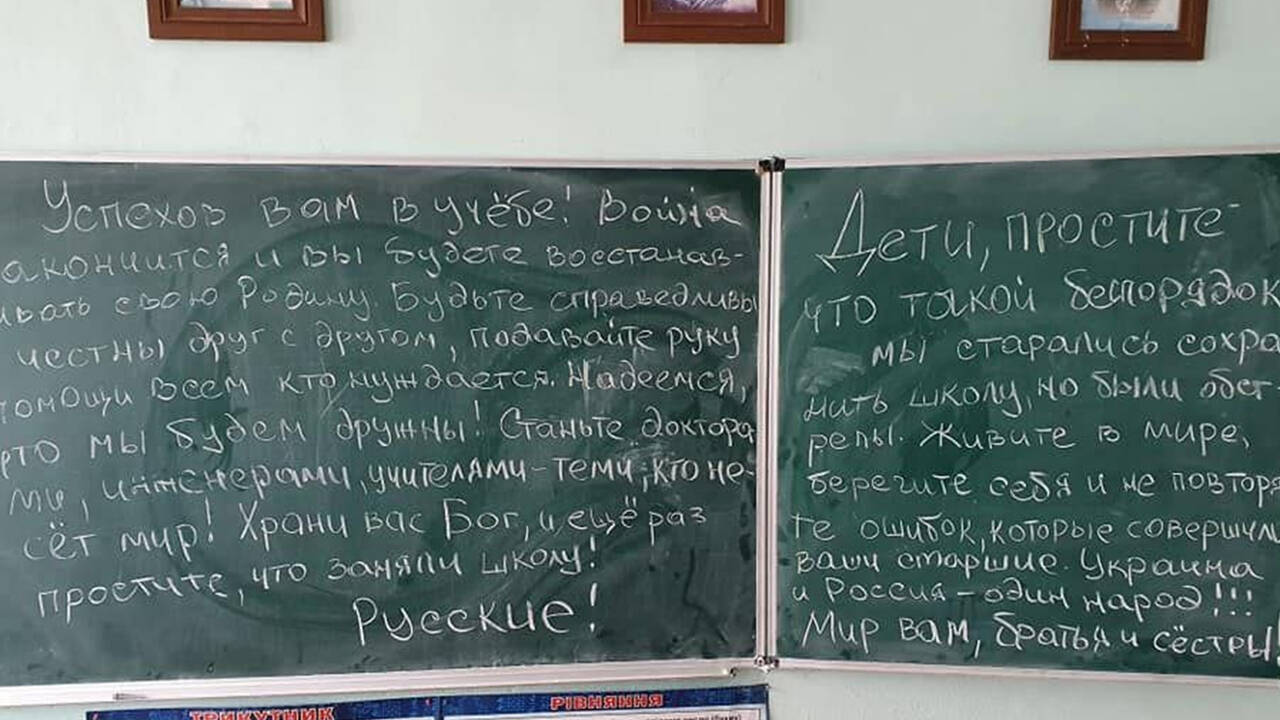 Успехов вам в учёбе! Война
акончится и вы будете восстанав-
ивать свою Родину. Будьте справедливы
честны друг с другом, подавайте руку
помощи всем кто нуждается. Надеемся,
что мы будем дружны! Станьте доктора
ми, инженерами, учителями - теми, кто не-
сёт мир! Храни вас Бог, и ещё раз
простите, что заняли школу!
Русские!
Дети, простите
что такой беспорядок
мы старались сохра
нить школу, но были обст-
релы. Живите в мире,
берегите себя и не повторя
те ошибок, которые совершили
ваши старшие. Украина
и Россия - один народ!!!
Мир вам, братья и сёстры!
ТРИКУТНИК
РІВНЯННЯ